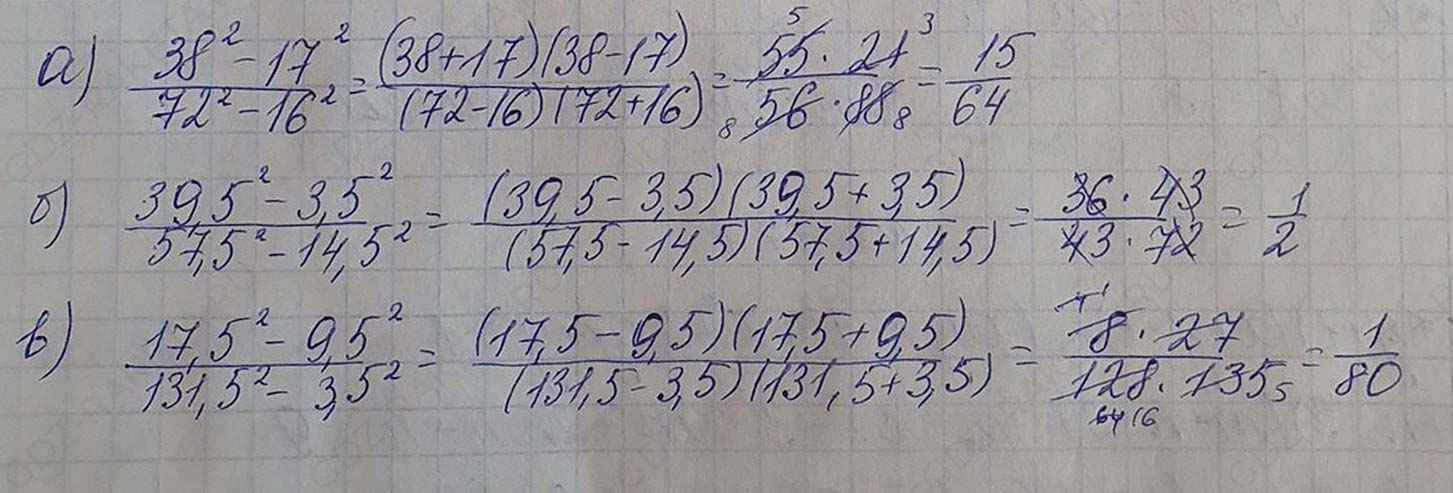 а) (38² - 17²)/(72² - 16²) = ((38+17)(38-17))/((72-16)(72+16)) = (55 · 21)/(56 · 88) = 15/64
5 3 8 8
б) (39,5² - 3,5²)/(57,5² - 14,5²) = ((39,5 - 3,5)(39,5 + 3,5))/((57,5 - 14,5)(57,5 + 14,5)) = (36 · 43)/(43 · 72) = 1/2
в) (17,5² - 9,5²)/(131,5² - 3,5²) = ((17,5 - 9,5)(17,5 + 9,5))/((131,5 - 3,5)(131,5 + 3,5)) = (8 · 27)/(128 · 135) = 1/80
1 5 64 16